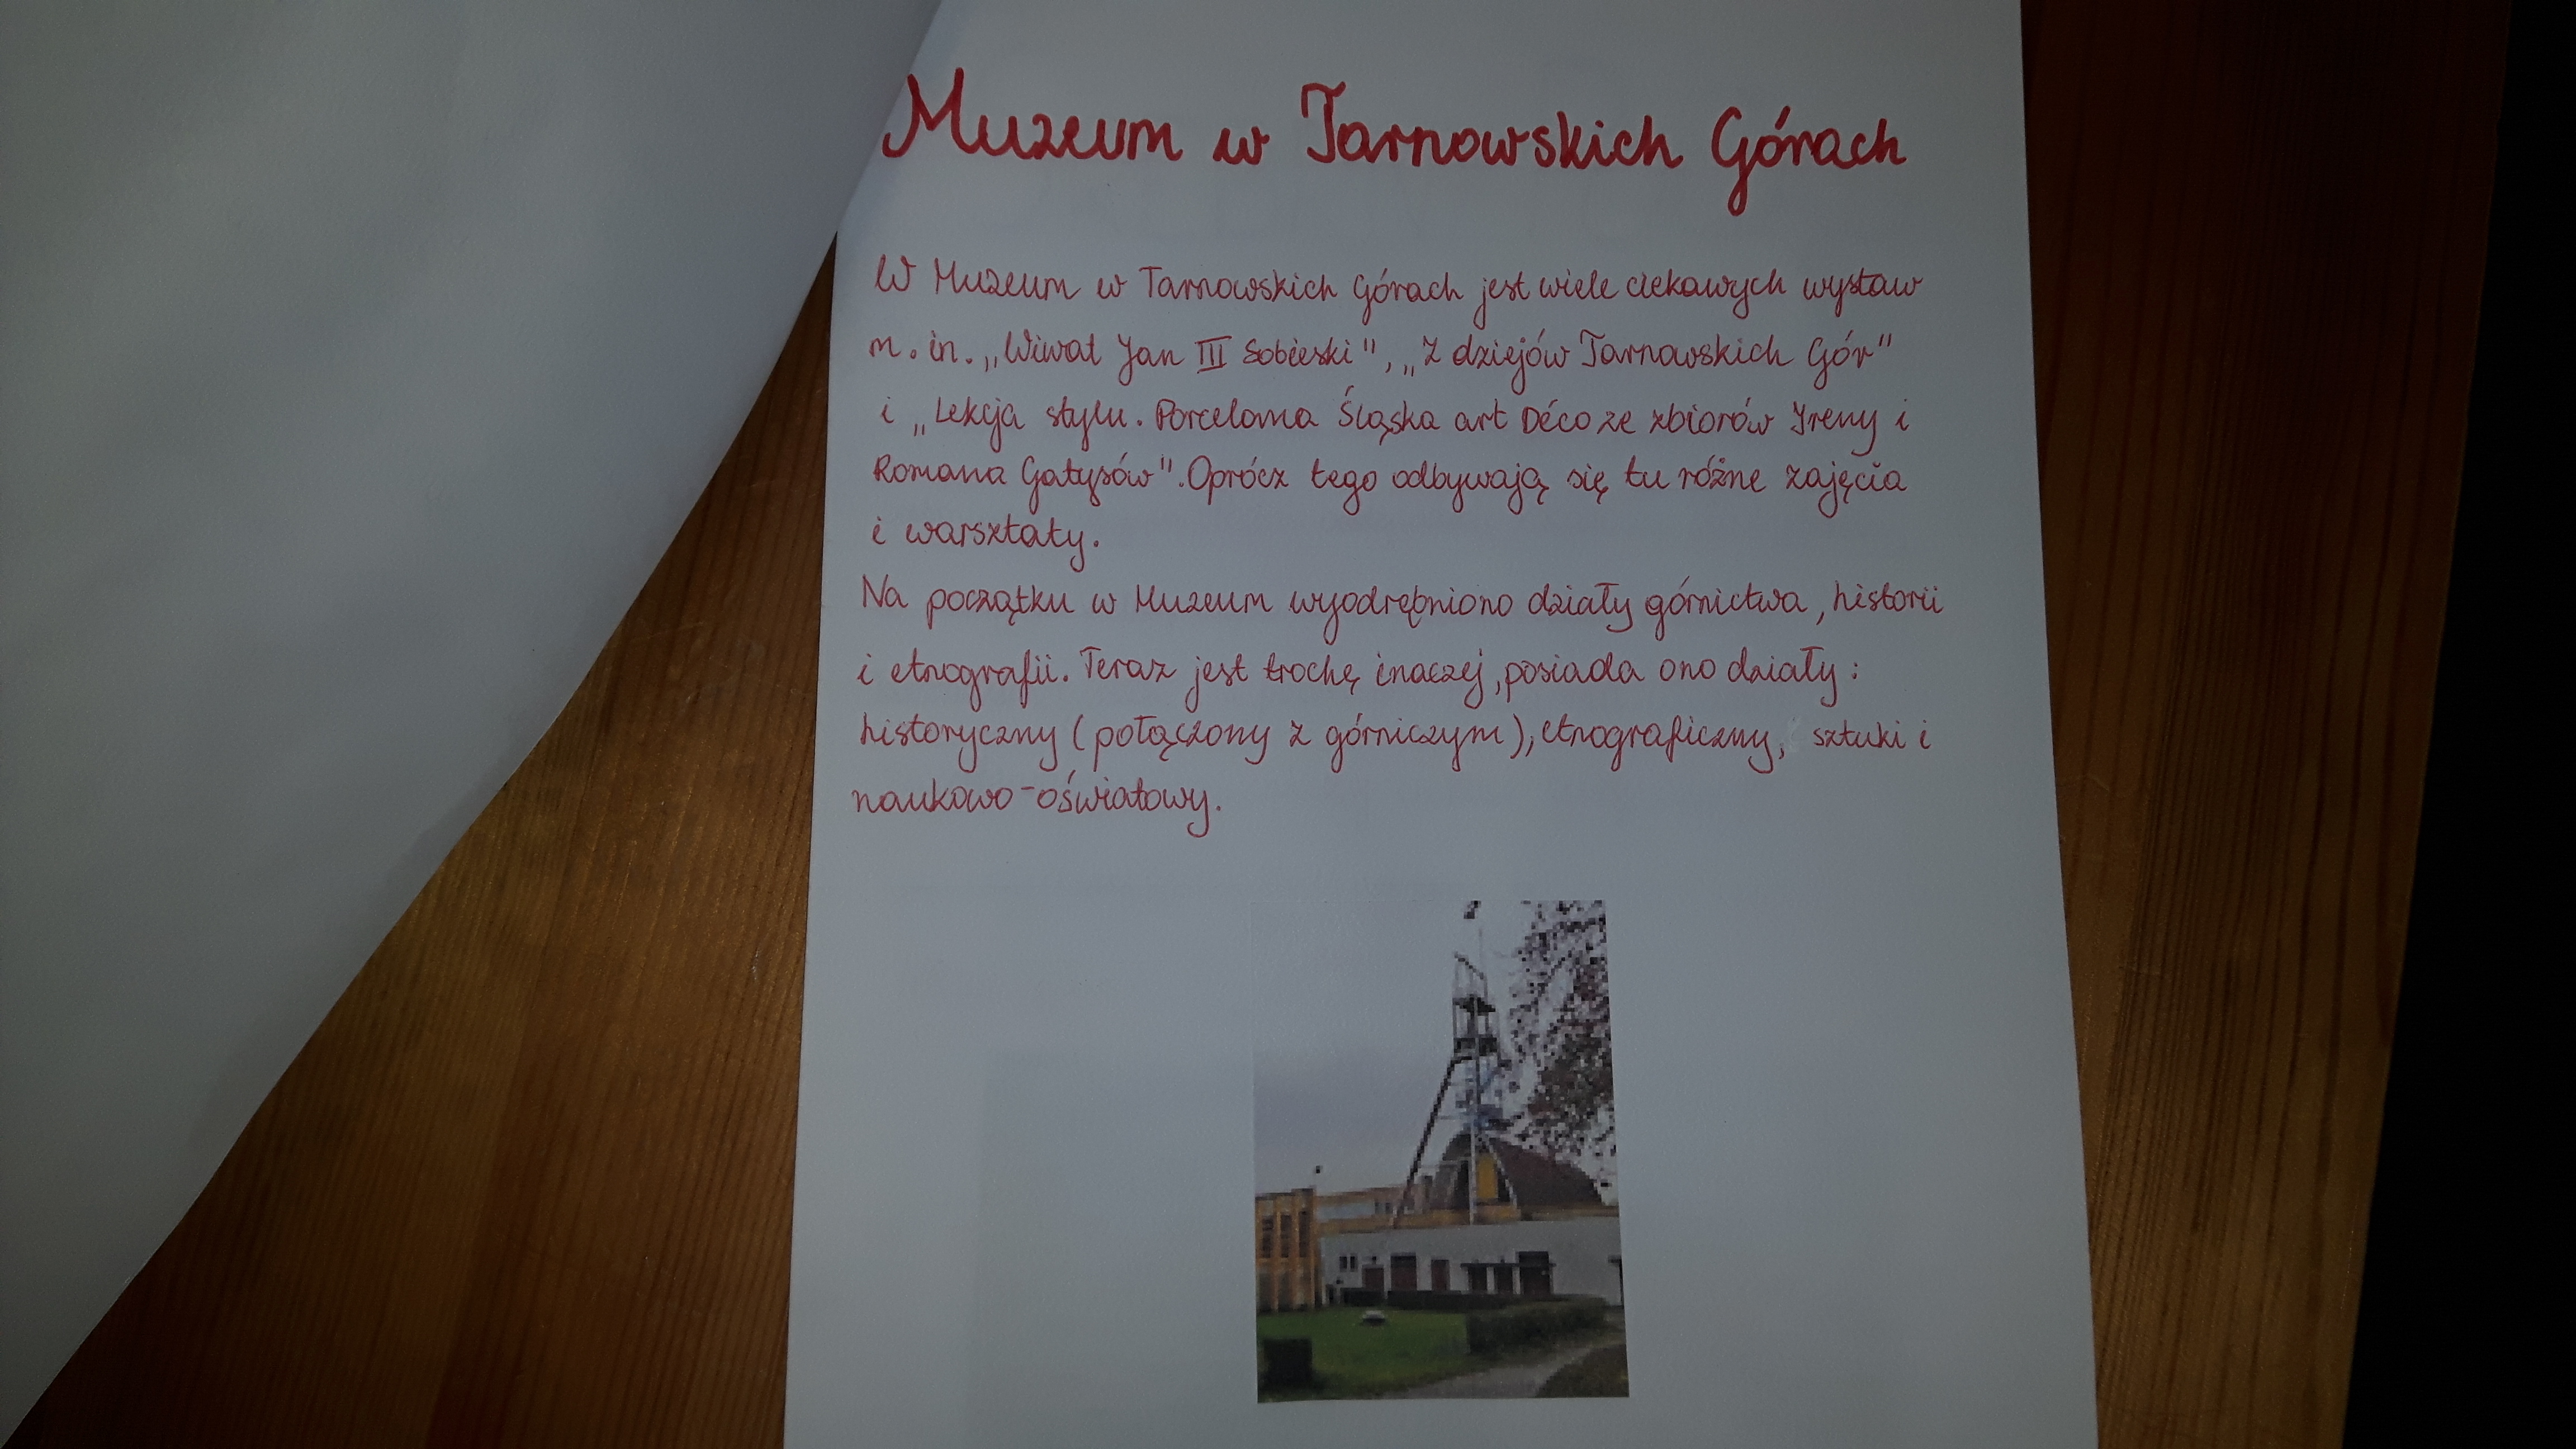 Muzeum w Tarnowskich Górach
W Muzeum w Tarnowskich Górach jest wiele ciekawych wystaw
m. in. „Wiwat Jan III Sobieski", „Z dziejów Tarnowskich Gór"
i „Lekcja stylu. Porcelana Śląska art Déco ze zbiorów Ireny i
Romana Gatysów". Oprócz tego odbywają się tu różne zajęcia
i warsztaty.
Na początku w Muzeum wyodrębniono działy górnictwa, historii
i etnografii. Teraz jest trochę inaczej, posiada ono działy:
historyczny (połączony z górniczym), etnograficzny, sztuki i
naukowo-oświatowy.